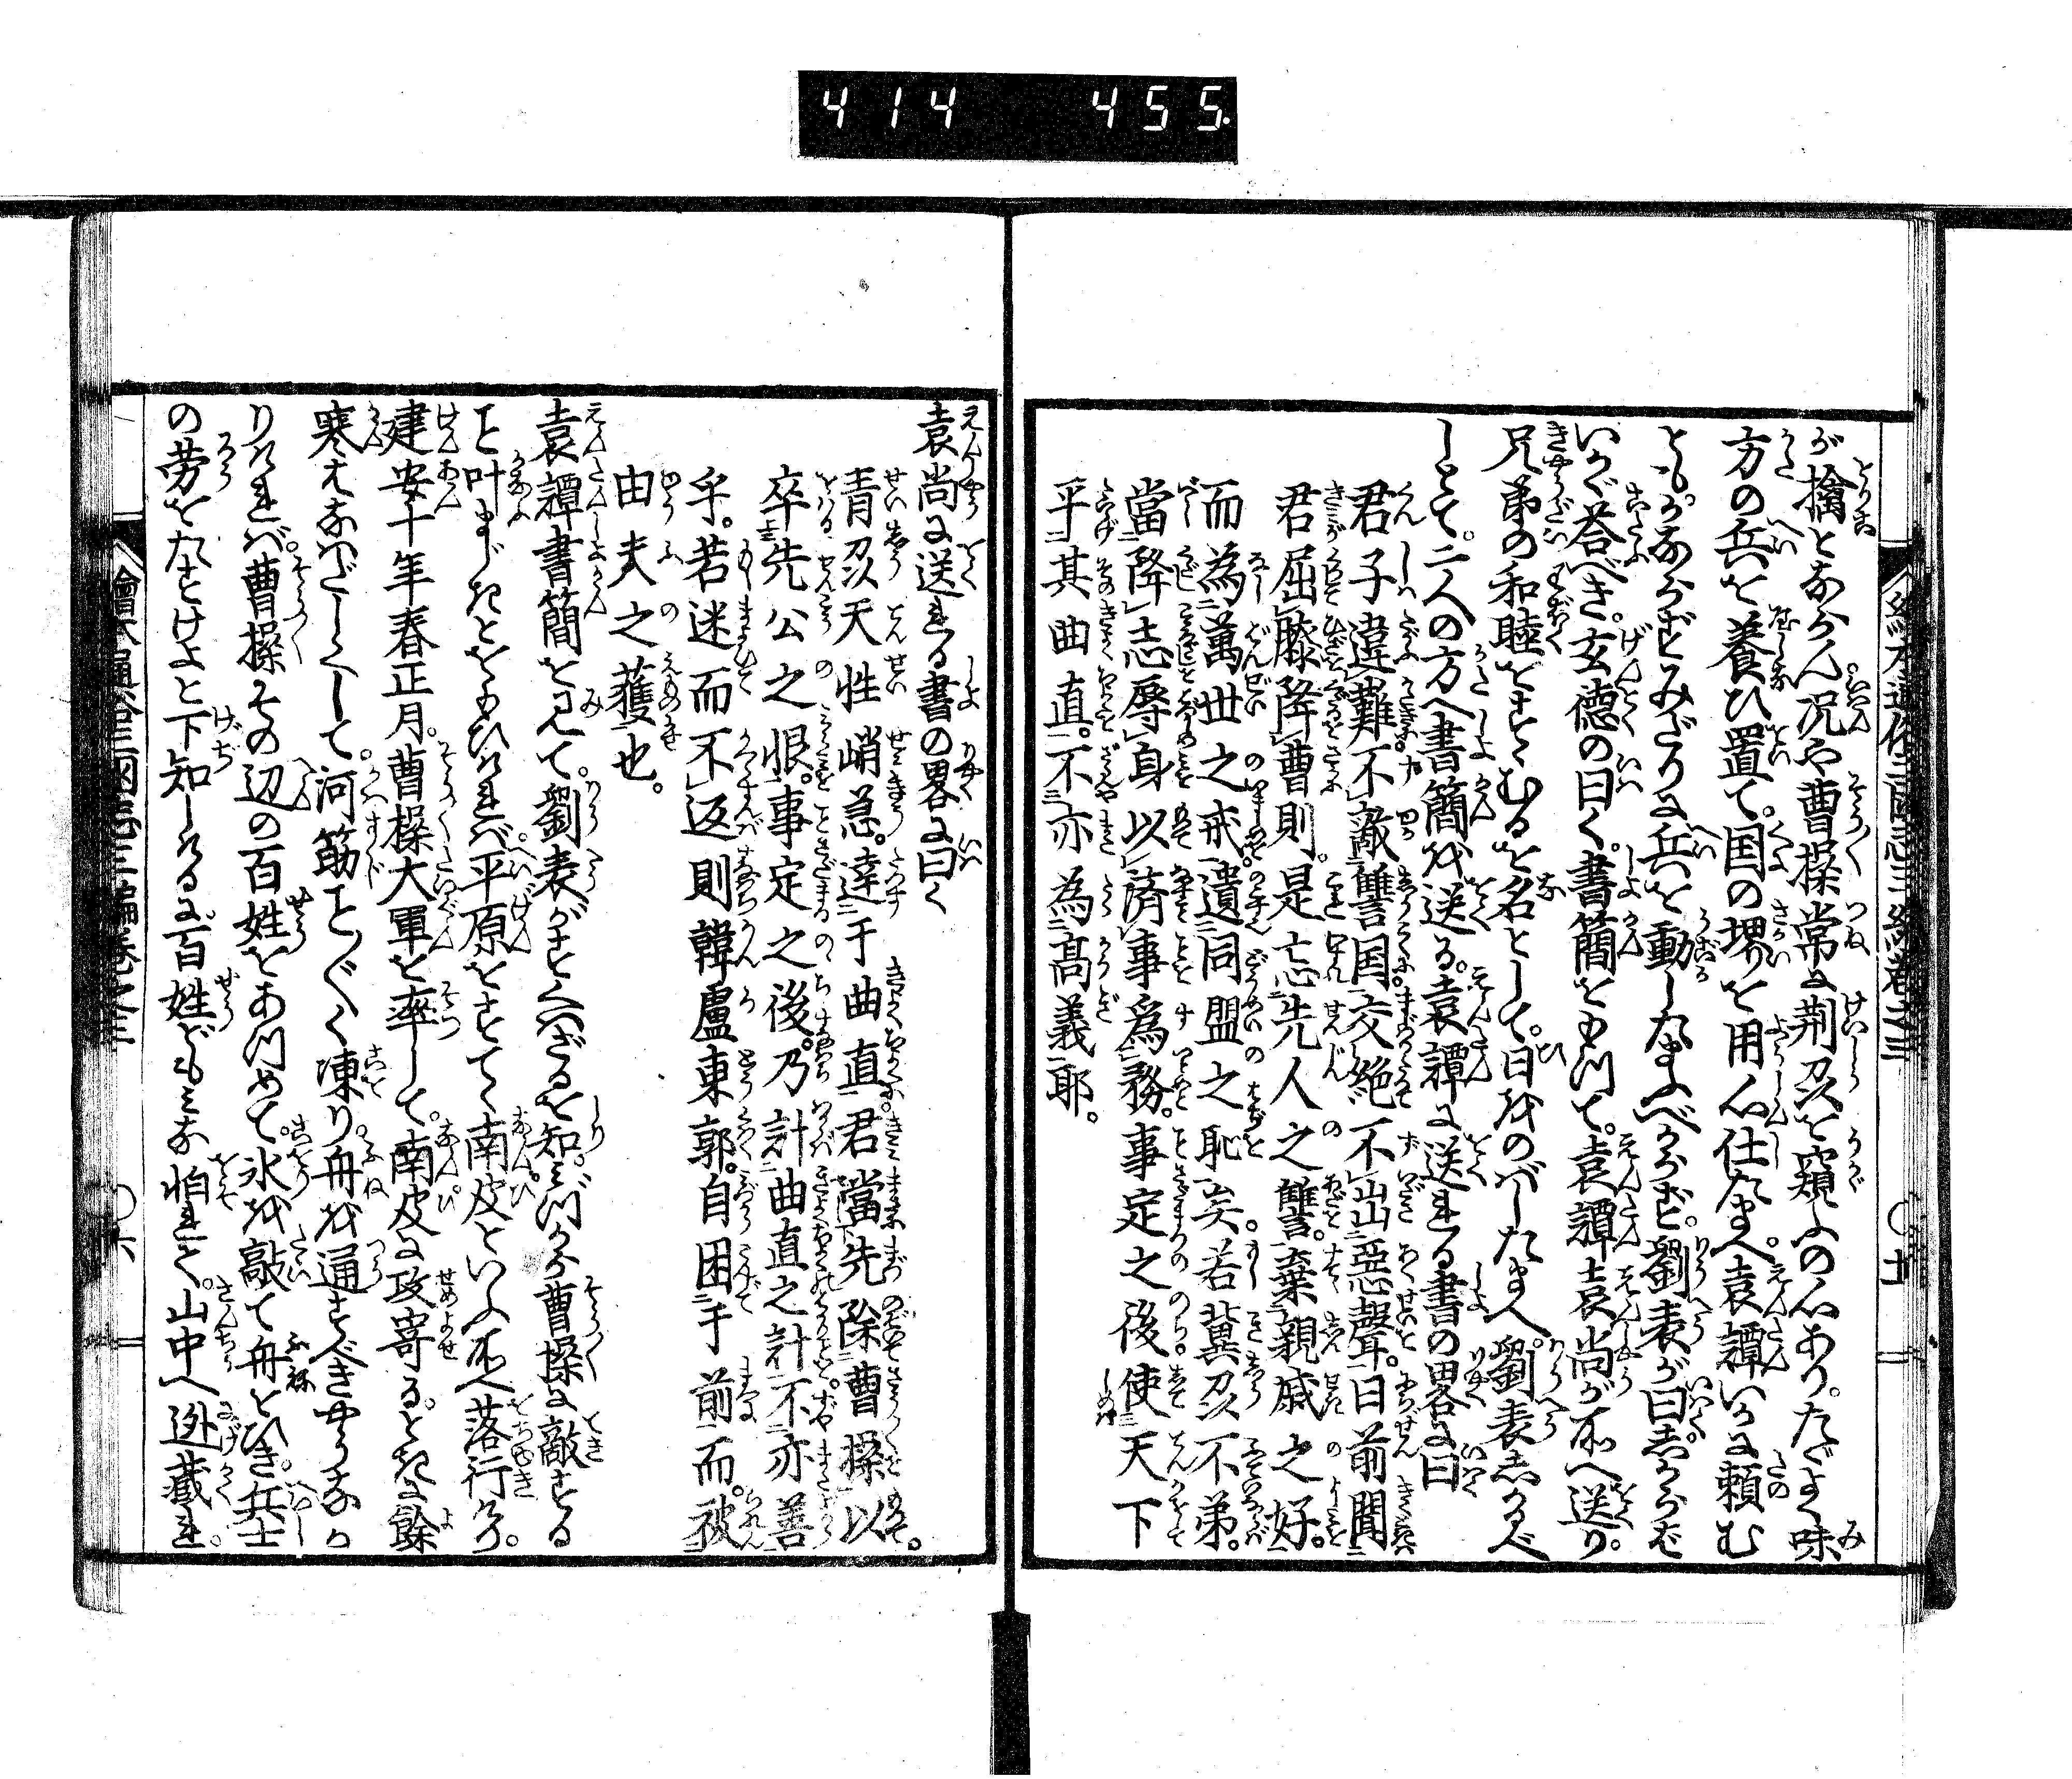 414 455.
が擒とならん。况や曹操常に荆及を窺ふの心あり。たゞよく味
方の兵を養ひ置て。国の堺を用心仕たまへ。袁譚いかに頼む
とも。かならずみだりに兵を動したまふべからず。劉表が曰。しからば
いかゞ荅べき。玄德の曰く。書簡をもつて。袁譚袁尚が所へ送り。
兄弟の和睦をすゝむるを名として。日をのばしたまへ。劉表しかるべ
しとて。二人の方へ書簡を送る。袁譚に送れる書の畧に曰
君子違難不敵讐国交絶不出惡聲。日前聞
君屈膝降曹則。是忘先人之讐。棄親戚之好。
而為萬世之戒。遺同盟之恥矣。若冀及不弟。
當降志辱身以濟事爲務。事定之後使天下
乎其曲直。不亦為高義耶。
袁尚に送れる書の畧に曰く
青及天性峭急。迷于曲直君當先除曹操以。
卒先公之恨。事定之後。乃計曲直之計不亦善
乎。若迷而不返則韓盧東郭。自困于前而。被
由夫之獲也。
袁譚書簡を見て。劉表がすくはざるを知。みづから曹操に敵する
こと叶まじきとをもひければ。平原をすてゝ南皮といふ所へ落行けり。
建安十年春正月。曹操大軍を率して。南皮に攻寄る。ときに餘
寒はなはだしくして。河筋こと〴〵く凍り。舟を通すべきやうなか
りければ。曹操その辺の百姓をあつめて。氷を敲て舟をひき。兵士
の劳をたすけよと下知しけるに。百姓どもみな怕れて。山中へ迯藏れ。
繪本通俗三国志三編卷之三 〇六